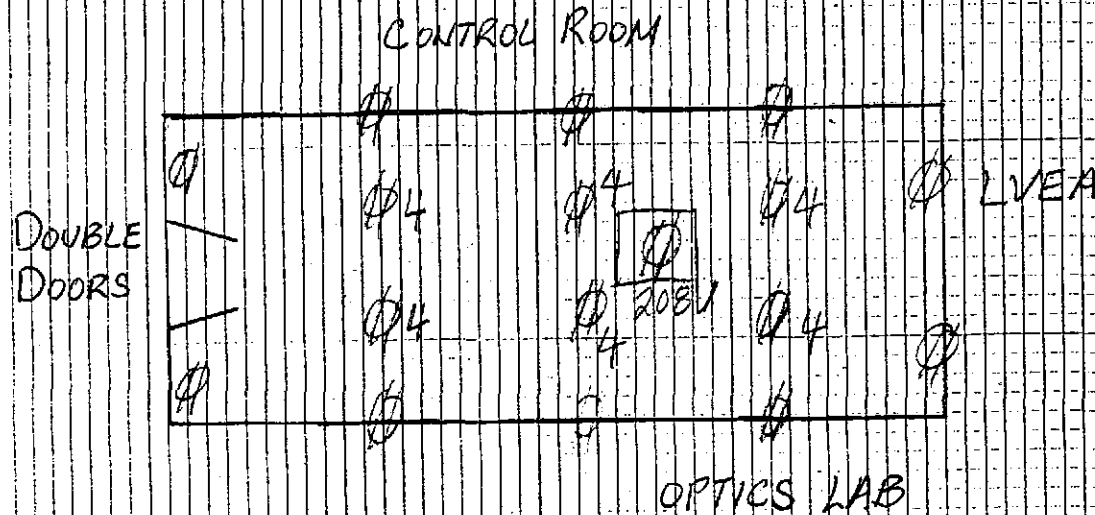 CONTROL ROOM
LVEA
4 4 4
DOUBLE
DOORS
208V
4 4 4
OPTICS LAB